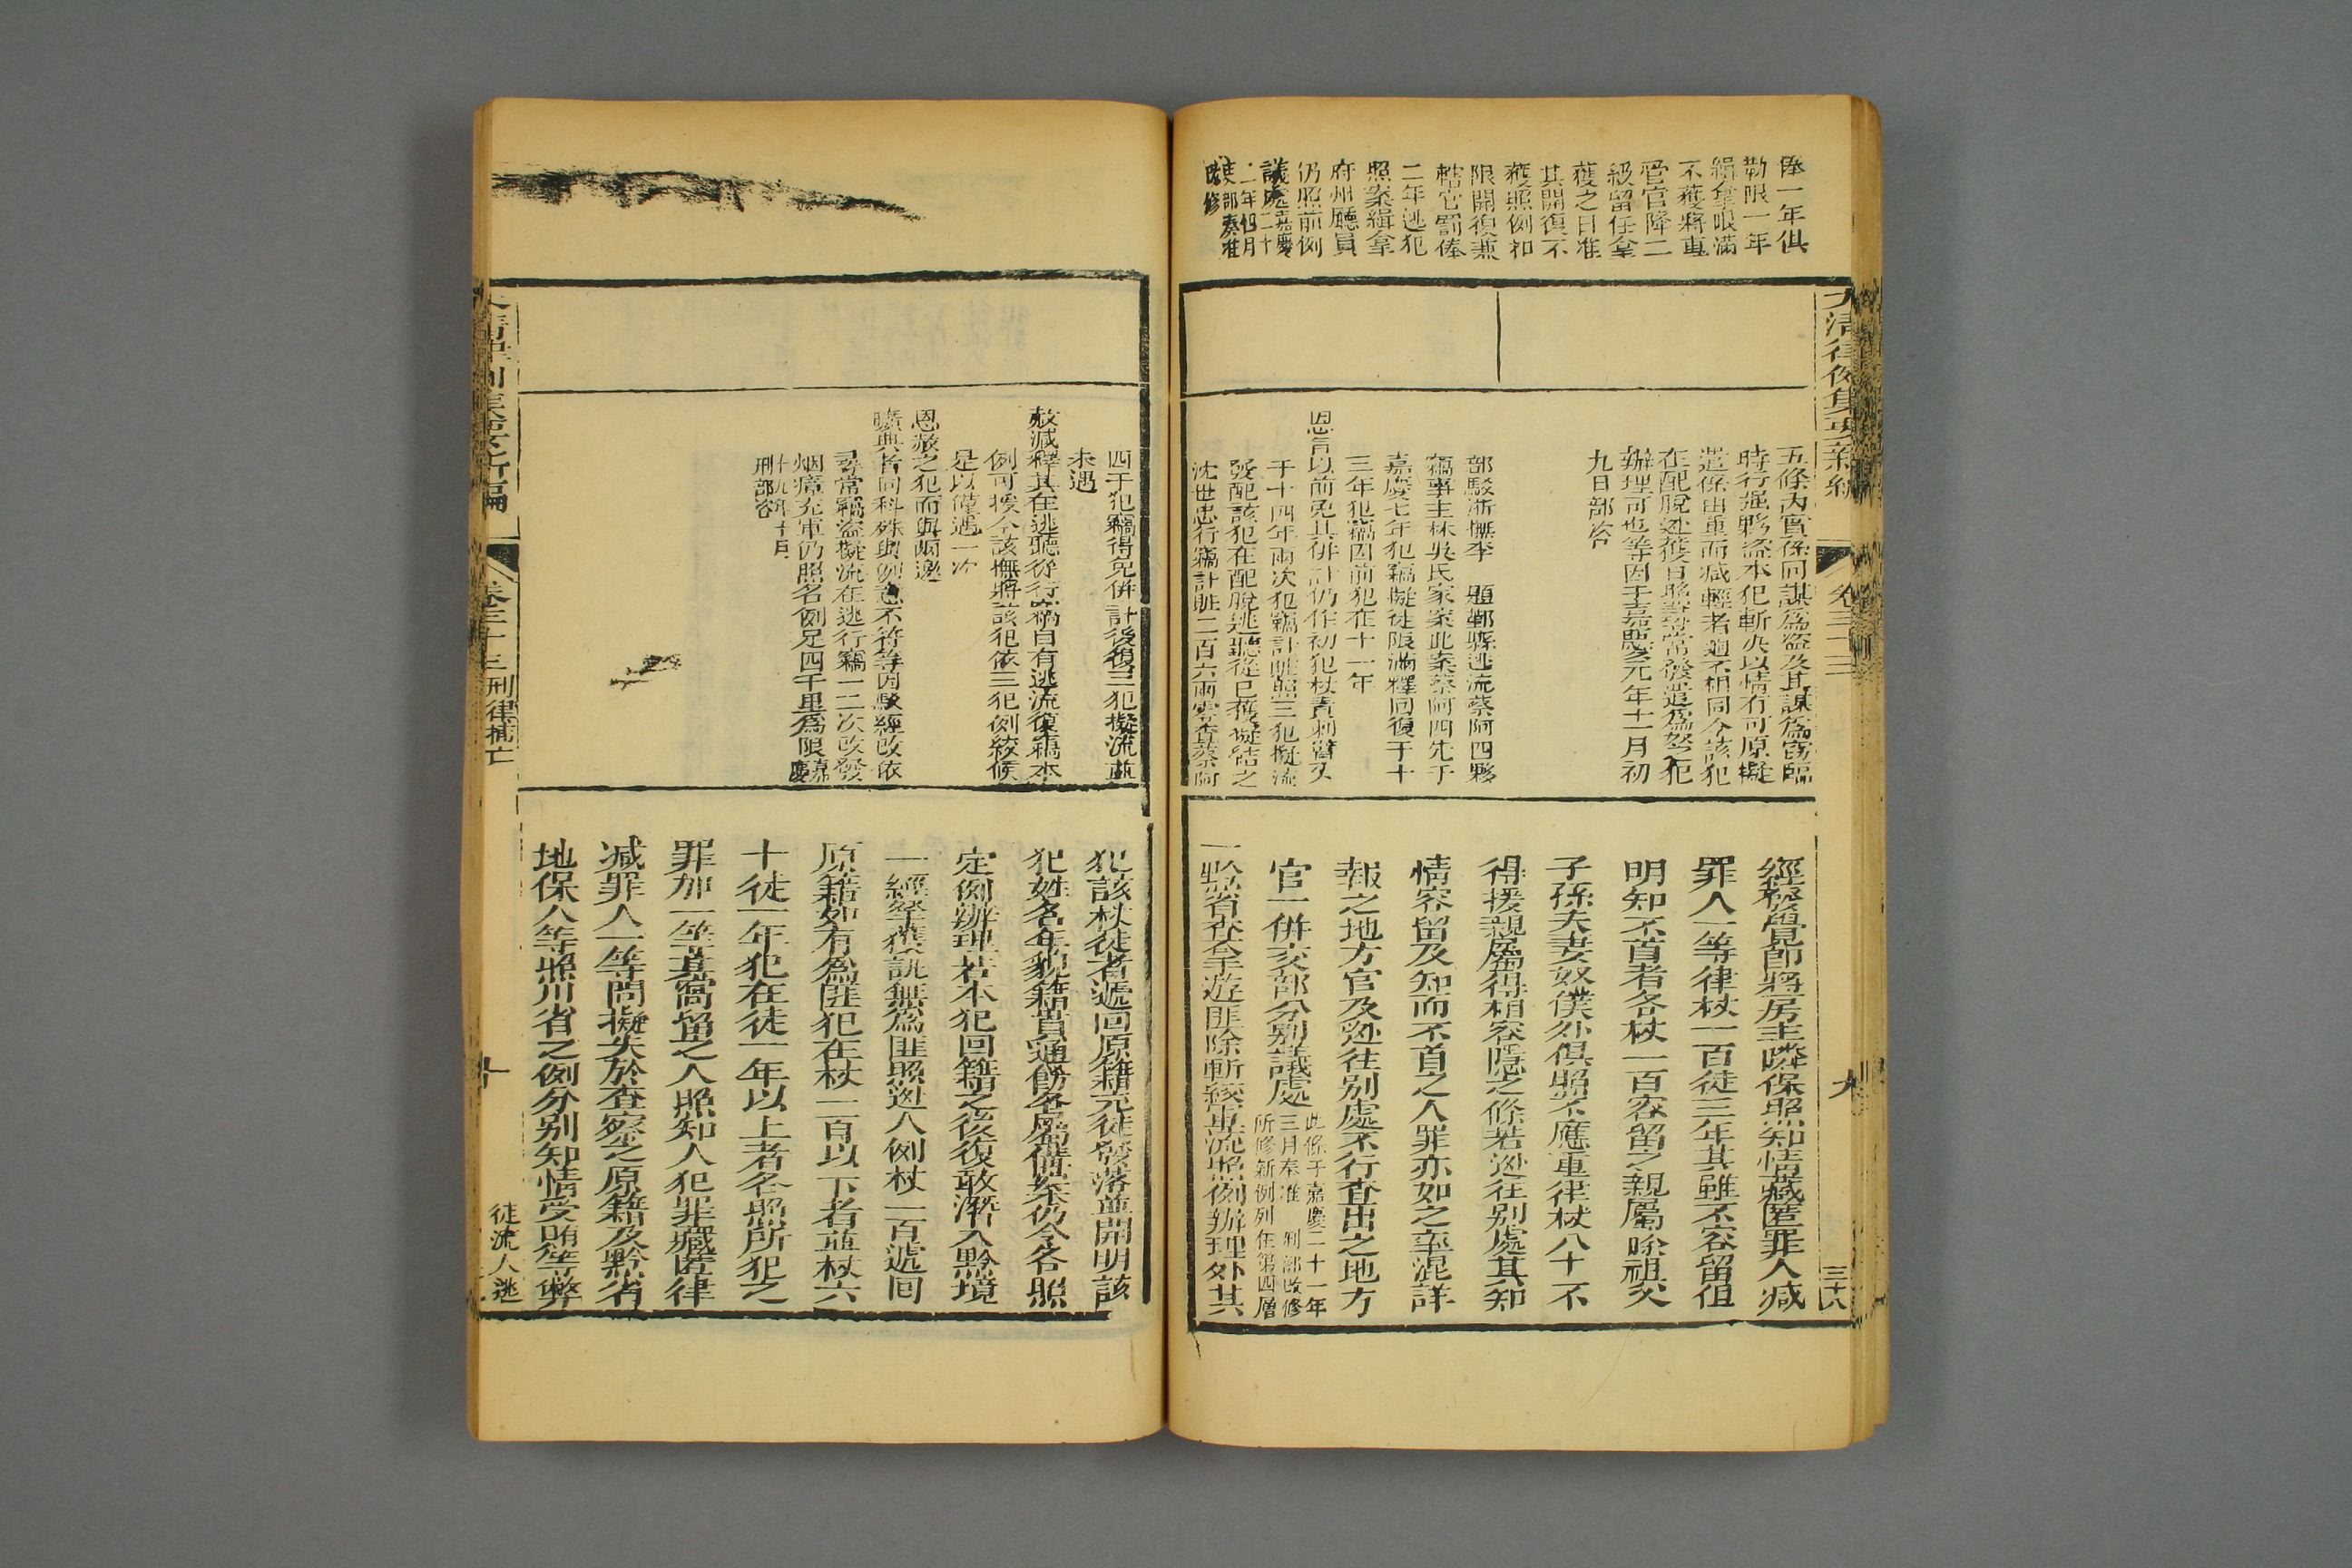 俸一年俱
勒限一年
緝拿限滿
不獲將專
管官降二
級留任拿
獲之日准
其開復不
獲照例扣
限開復兼
轄官罰俸
二年逃犯
照案緝拿
府州廳員
仍照前例
議處嘉慶二十
二年四月
吏部奏准
改修
大清律例集要新編
卷三十三
九
三十八
五條內實係同謀爲盜及其謀爲竊臨
時行强夥盜本犯斬决以情有可原擬
遣係由重而減輕者迥不相同今該犯
在配脫逃獲日照尋常發遣爲奴人犯
辦理可也等因于嘉慶元年十一月初
九日部咨
部駁浙撫李 題鄞縣逃流蔡阿四夥
竊事主林吳氏家案此案蔡阿四先于
嘉慶七年犯竊擬徒限滿釋回復于十
三年犯竊因前犯在十一年
恩旨以前免其併計仍作初犯杖責刺臂又
于十四年兩次犯竊計贓照三犯擬流
發配該犯在配脫逃聽從已獲擬結之
沈世忠行竊計贓二百六兩零查蔡阿
經發覺卽將房主隣保照知情藏匿罪人減
罪人一等律杖一百徒三年其雖不容留但
明知不首者各杖一百容留之親屬除祖父
子孫夫妻奴僕外俱照不應重律杖八十不
得援親屬得相容隱之條若逃往別處其知
情容留及知而不首之人罪亦如之牽混詳
報之地方官及逃往別處不行查出之地方
官一併交部分別議處
此條于嘉慶二十一年
三月奉准 刑部改修
所修新例列在第四層
一黔省查拿遊匪除斬絞軍流照例辦理外其
四于犯竊得免併計後復三犯擬流並
未遇
赦減釋其在逃聽從行竊自有逃流復竊本
例可援今該撫將該犯依三犯例絞候
是以僅遇一次
恩赦之犯而與兩邀
曠典者同科殊與例意不符等因駁經改依
尋常竊盜擬流在逃行竊一二次改發
烟瘴充軍仍照名例足四千里爲限嘉慶
十九年十月
刑部咨
犯該杖徒者遞回原籍充徒發落並開明該
犯姓名年貌籍貫通飭各屬備案仍令各照
定例辦理若本犯回籍之後復敢潛入黔境
一經拏獲訊無爲匪照逃人例杖一百遞回
原籍如有爲匪犯在杖一百以下者並杖六
十徒一年犯在徒一年以上者各照所犯之
罪加一等其窩留之人照知人犯罪藏匿律
減罪人一等問擬失於查察之原籍及黔省
地保人等照川省之例分別知情受賄等弊
卷三十三 刑律捕亡
十
徒流人逃